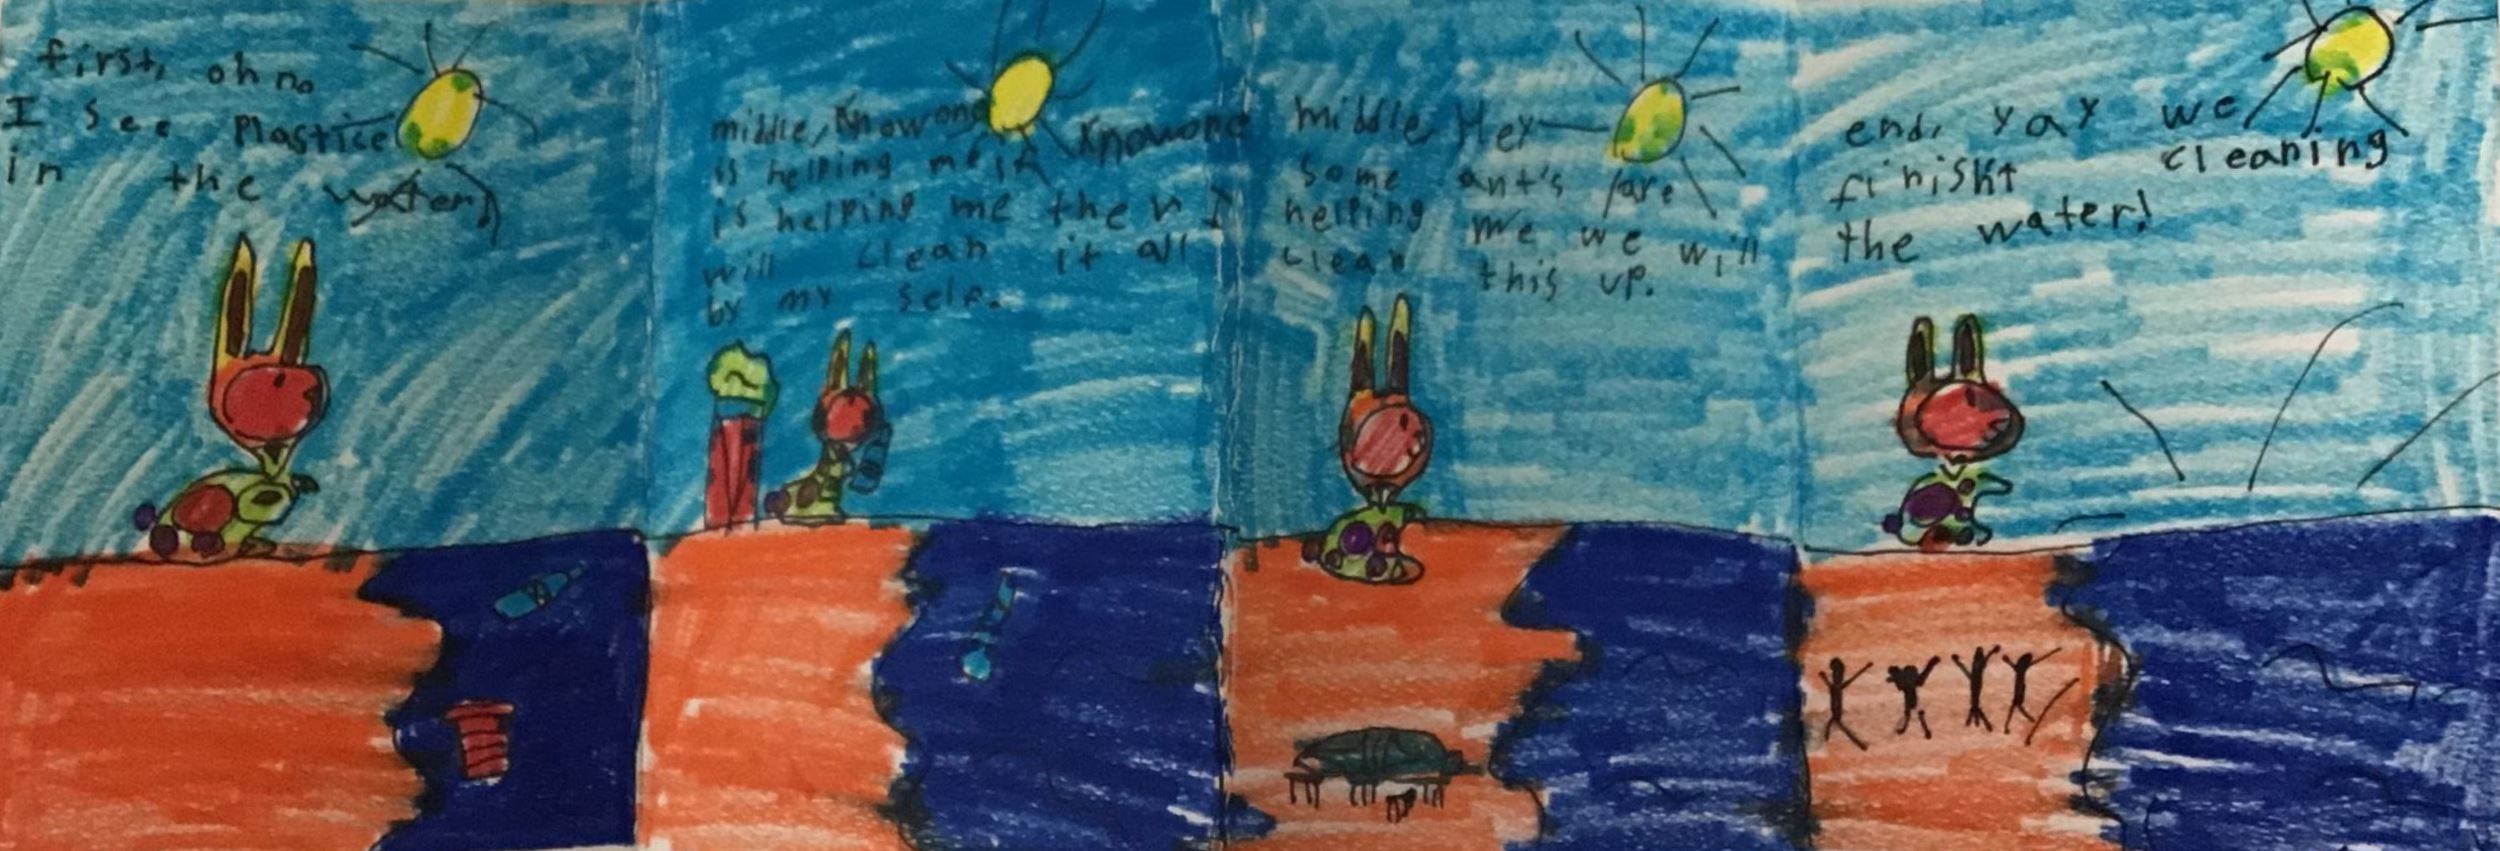 first, oh no
I see Plastice
in the water
middle, Know one
is helping me if Knowone
is helping me then I
will clean it all
by my self.
middle, Hey
Some ant's are
helping me we will
clean this up.
end, yay we
finisht cleaning
the water!